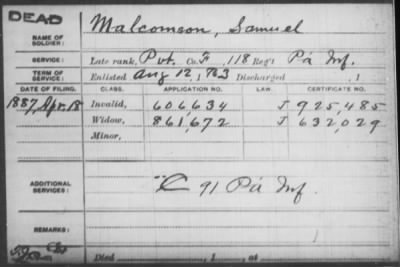 DEAD
NAME OF SOLDIER: Malcomson, Samuel
SERVICE: Late rank, Pvt. Co. F, 118 Reg't Pa Inf.
TERM OF SERVICE: Enlisted Aug 12, 1863 Discharged , 1
DATE OF FILING. CLASS. APPLICATION NO. LAW. CERTIFICATE NO.
1887, Apr. 18 Invalid, 606,634 J 925,485
Widow, 861,672 J 632,029
Minor,
ADDITIONAL SERVICES: " C 91 Pa Inf.
REMARKS:
Died , 1 , at